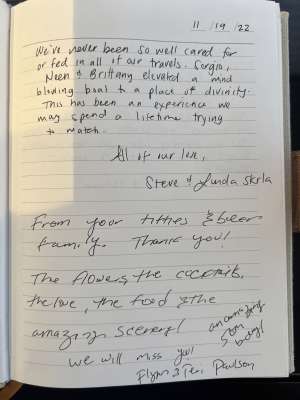 11 / 19 / 22
We've never been so well cared for
or fed in all of our travels. Sergio,
Neen & Brittany elevated a mind
blowing boat to a place of divinity.
This has been an experience we
may spend a lifetime trying
to match.
All of our love,
Steve & Linda Skrla
From your titties & beer
family. Thank you!
The flowers, the cocktails,
the love, the food & the
amazing scenery!
an amazing
Son
boy!
We will miss you!
Flynn & Teri Paulson